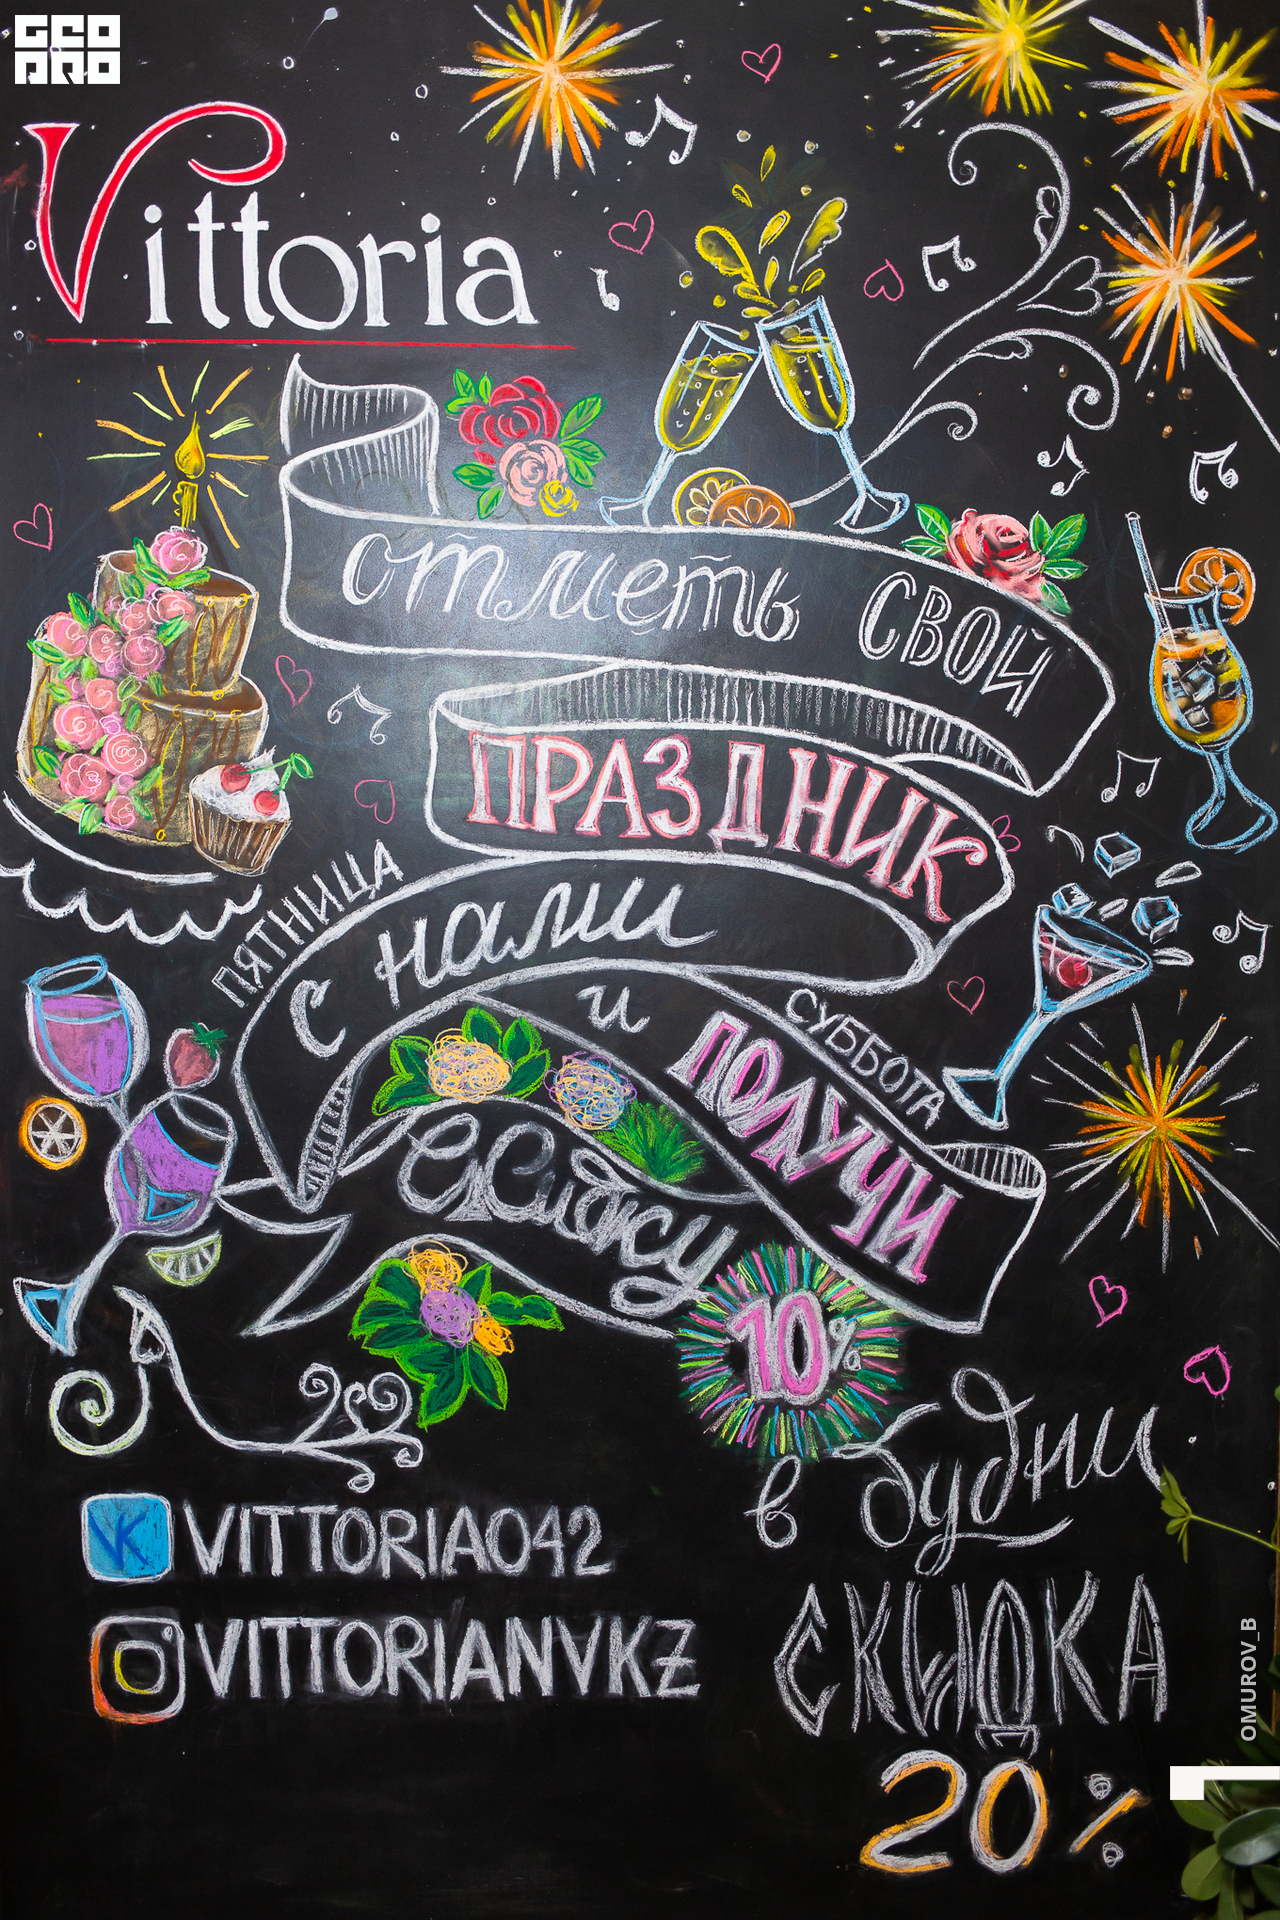 GEO
PRO
Vittoria
отметь свой
ПРАЗДНИК
ПЯТНИЦА
с нами
и
СУББОТА
ПОЛУЧИ
Скидку
10%
в будни
СКИДКА
20%
VK VITTORIA042
VITTORIANVKZ
OMUROV_B